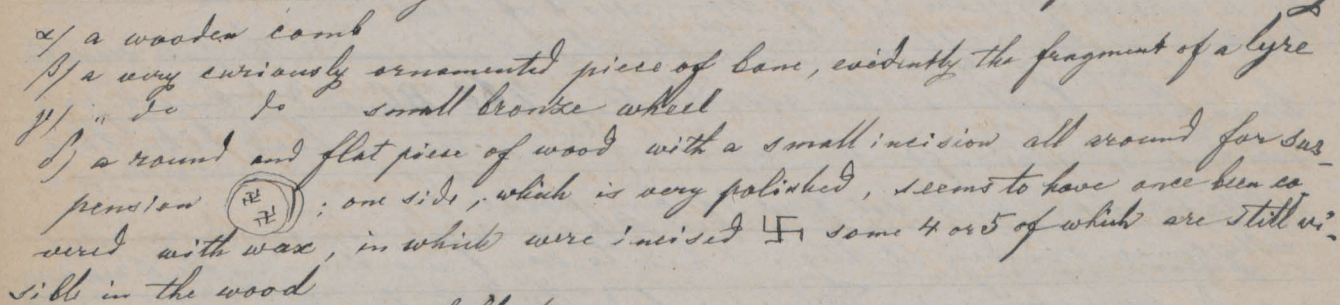 α/ a wooden comb
β/ a very curiously ornamented piece of bone, evidently the fragment of a lyre
γ/ " do do small bronze wheel
δ) a round and flat piece of wood with a small incision all around for sus-
pension 卍 卍 ; one side, which is very polished, seems to have once been co-
vered with wax, in which were incised 卐 some 4 or 5 of which are still vi-
sible in the wood